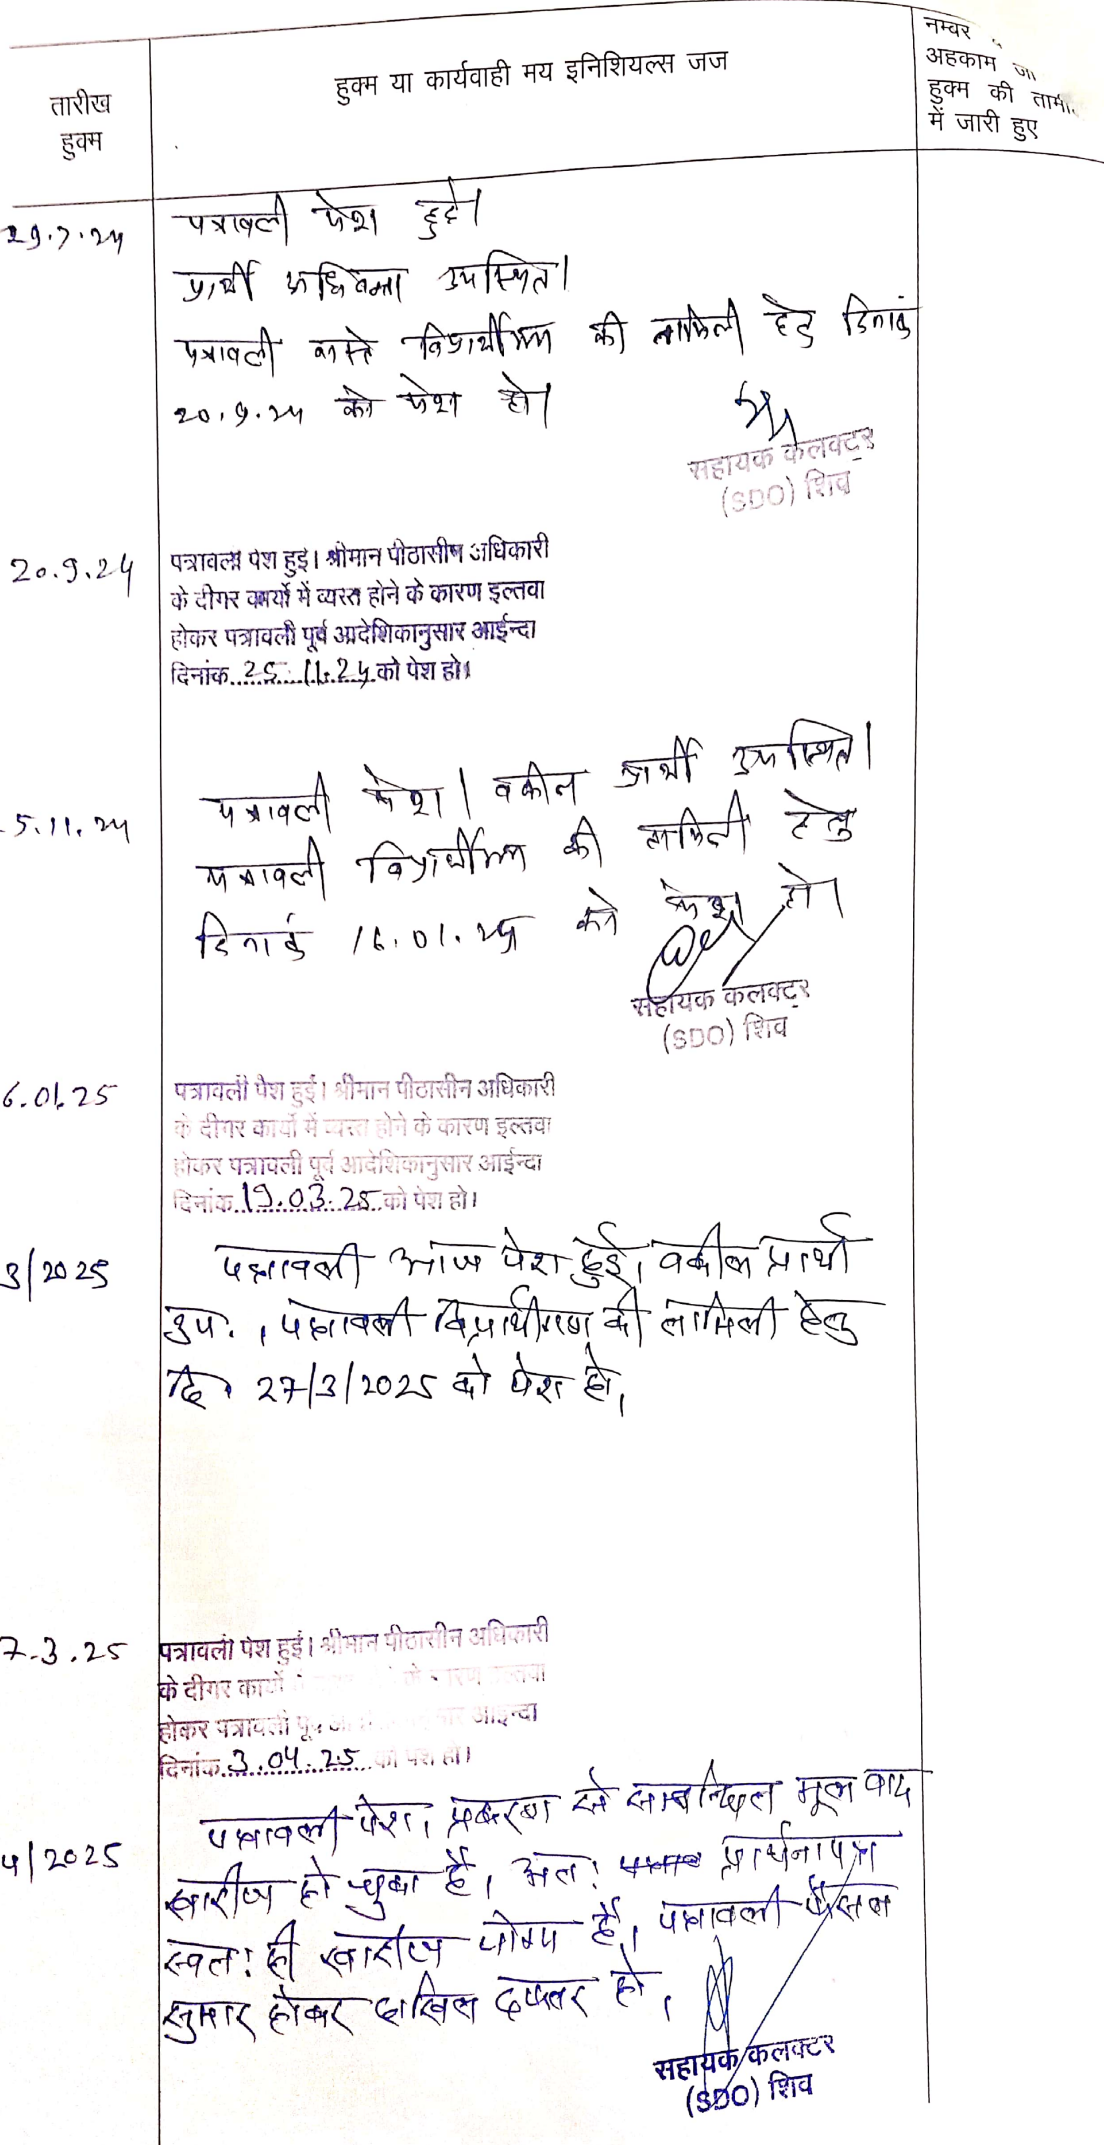 तारीख
हुक्म
हुक्म या कार्यवाही मय इनिशियल्स जज
नम्बर
अहकाम जा
हुक्म की तामी
में जारी हुए
29.7.24
पत्रावली पेश हुई।
प्रार्थी अधिवक्ता उपस्थित।
पत्रावली वास्ते विप्रार्थीगण की तामिली हेतु दिनांक
20.9.24 को पेश हो।
सहायक कलक्टर
(SDO) शिव
20.9.24
पत्रावली पेश हुई। श्रीमान पीठासीन अधिकारी
के दीगर कार्यों में व्यस्त होने के कारण इल्तवा
होकर पत्रावली पूर्व आदेशिकानुसार आईन्दा
दिनांक 25.11.24 को पेश हो।
5.11.24
पत्रावली पेश। वकील प्रार्थी उपस्थित।
पत्रावली विप्रार्थीगण की तामिली हेतु
दिनांक 16.01.25 को पेश हो।
सहायक कलक्टर
(SDO) शिव
6.01.25
पत्रावली पेश हुई। श्रीमान पीठासीन अधिकारी
के दीगर कार्यों में व्यस्त होने के कारण इल्तवा
होकर पत्रावली पूर्व आदेशिकानुसार आईन्दा
दिनांक 19.03.25 को पेश हो।
3/2025
पत्रावली आज पेश हुई। वकील प्रार्थी
उप.। पत्रावली विप्रार्थीगण की तामिली हेतु
दि. 27/3/2025 को पेश हो।
7.3.25
पत्रावली पेश हुई। श्रीमान पीठासीन अधिकारी
के दीगर कार्यों के कारण इल्तवा
होकर पत्रावली पूर्व आईन्दा
दिनांक 3.04.25 को पेश हो।
4/2025
पत्रावली पेश। प्रकरण से सम्बन्धित मूल वाद
खारीज हो चुका है। अत: प्रार्थना पत्र
स्वत: ही खारीज योग्य है। पत्रावली फैसल
सुमार होकर दाखिल दफ्तर हो।
सहायक कलक्टर
(SDO) शिव